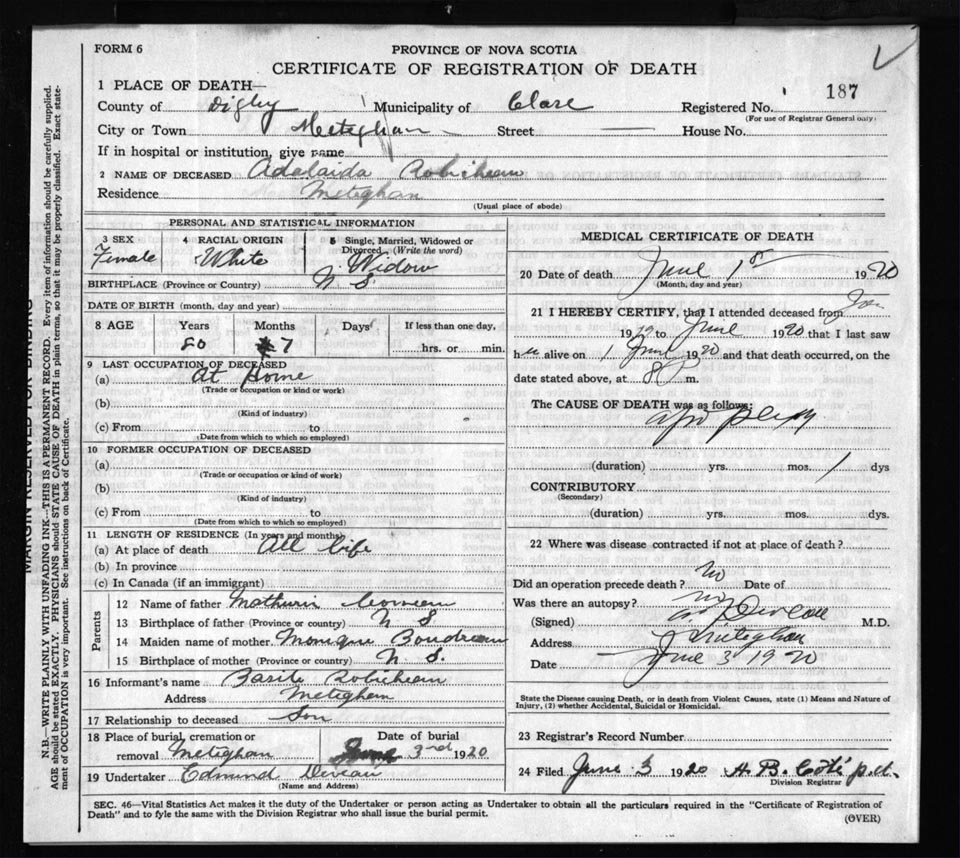 FORM 6
PROVINCE OF NOVA SCOTIA
CERTIFICATE OF REGISTRATION OF DEATH
187
1 PLACE OF DEATH—
County of Digby Municipality of Clare Registered No.
(For use of Registrar General only)
City or Town Meteghan Street — House No.
If in hospital or institution, give name
2 NAME OF DECEASED Adelaida Robicheau
Residence Meteghan
(Usual place of abode)
PERSONAL AND STATISTICAL INFORMATION
3 SEX 4 RACIAL ORIGIN 5 Single, Married, Widowed or Divorced (Write the word)
Female White Widow
BIRTHPLACE (Province or Country) N S.
DATE OF BIRTH (month, day and year)
8 AGE Years Months Days If less than one day,
80 7 hrs. or min.
9 LAST OCCUPATION OF DECEASED
(a) At Home
(Trade or occupation or kind or work)
(b)
(Kind of industry)
(c) From to
(Date from which to which so employed)
10 FORMER OCCUPATION OF DECEASED
(a)
(Trade or occupation or kind of work)
(b)
(Kind of industry)
(c) From to
(Date from which to which so employed)
11 LENGTH OF RESIDENCE (In years and months)
(a) At place of death All Life
(b) In province
(c) In Canada (if an immigrant)
Parents
12 Name of father Mathurin Comeau
13 Birthplace of father (Province or country) N S
14 Maiden name of mother Monique Boudreau
15 Birthplace of mother (Province or country) N S.
16 Informant's name Basile Robicheau
Address Meteghan
17 Relationship to deceased Son
18 Place of burial, cremation or removal Meteghan Date of burial June 3rd 1920
19 Undertaker Edmund Deveau
(Name and Address)
MEDICAL CERTIFICATE OF DEATH
20 Date of death June 1st 1920
(Month, day and year)
21 I HEREBY CERTIFY, that I attended deceased from
1920 to June 1920 that I last saw
her alive on 1 June 1920 and that death occurred, on the
date stated above, at 8 P m.
The CAUSE OF DEATH was as follows:
apoplexy
(duration) yrs. mos. 1 dys
CONTRIBUTORY
(Secondary)
(duration) yrs. mos. dys.
22 Where was disease contracted if not at place of death?
Did an operation precede death? No Date of
Was there an autopsy? No
(Signed) Deveau M.D.
Address Meteghan
Date June 3 1920
State the Disease causing Death, or in death from Violent Causes, state (1) Means and Nature of
Injury, (2) whether Accidental, Suicidal or Homicidal.
23 Registrar's Record Number
24 Filed June 3 1920 H B. Coté
Division Registrar
SEC. 46—Vital Statistics Act makes it the duty of the Undertaker or person acting as Undertaker to obtain all the particulars required in the "Certificate of Registration of
Death" and to fyle the same with the Division Registrar who shall issue the burial permit.
(OVER)
MARGIN RESERVED FOR BINDING
N.B.—WRITE PLAINLY WITH UNFADING INK—THIS IS A PERMANENT RECORD. Every item of information should be carefully supplied.
AGE should be stated EXACTLY. PHYSICIANS should STATE CAUSE OF DEATH in plain terms, so that it may be properly classified. Exact state-
ment of OCCUPATION is very important. See instructions on back of Certificate.